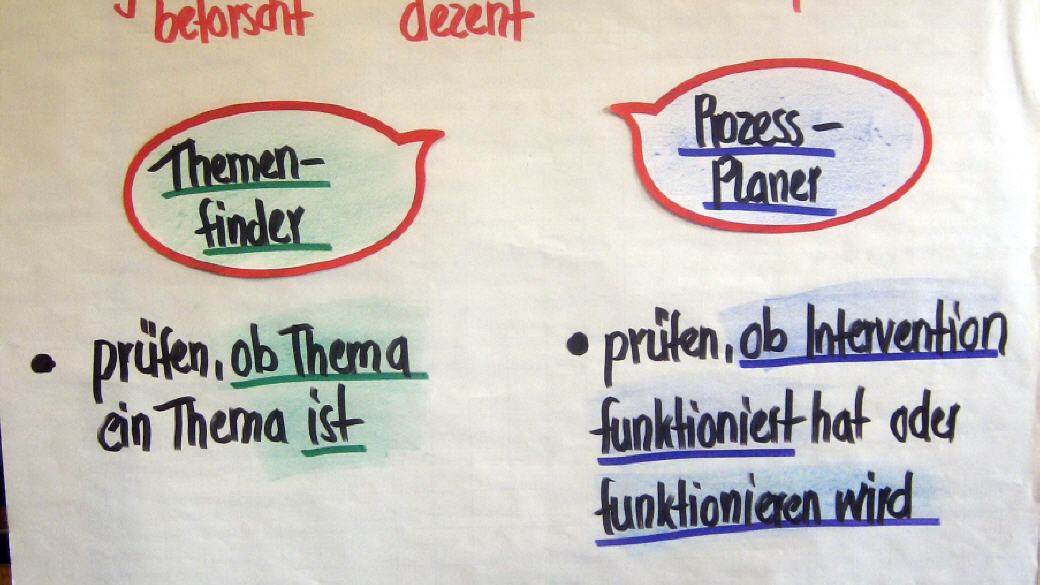 beforscht dezent
Themen-
finder
Prozess-
Planer
• prüfen, ob Thema
ein Thema ist
• prüfen, ob Intervention
funktioniert hat oder
funktionieren wird